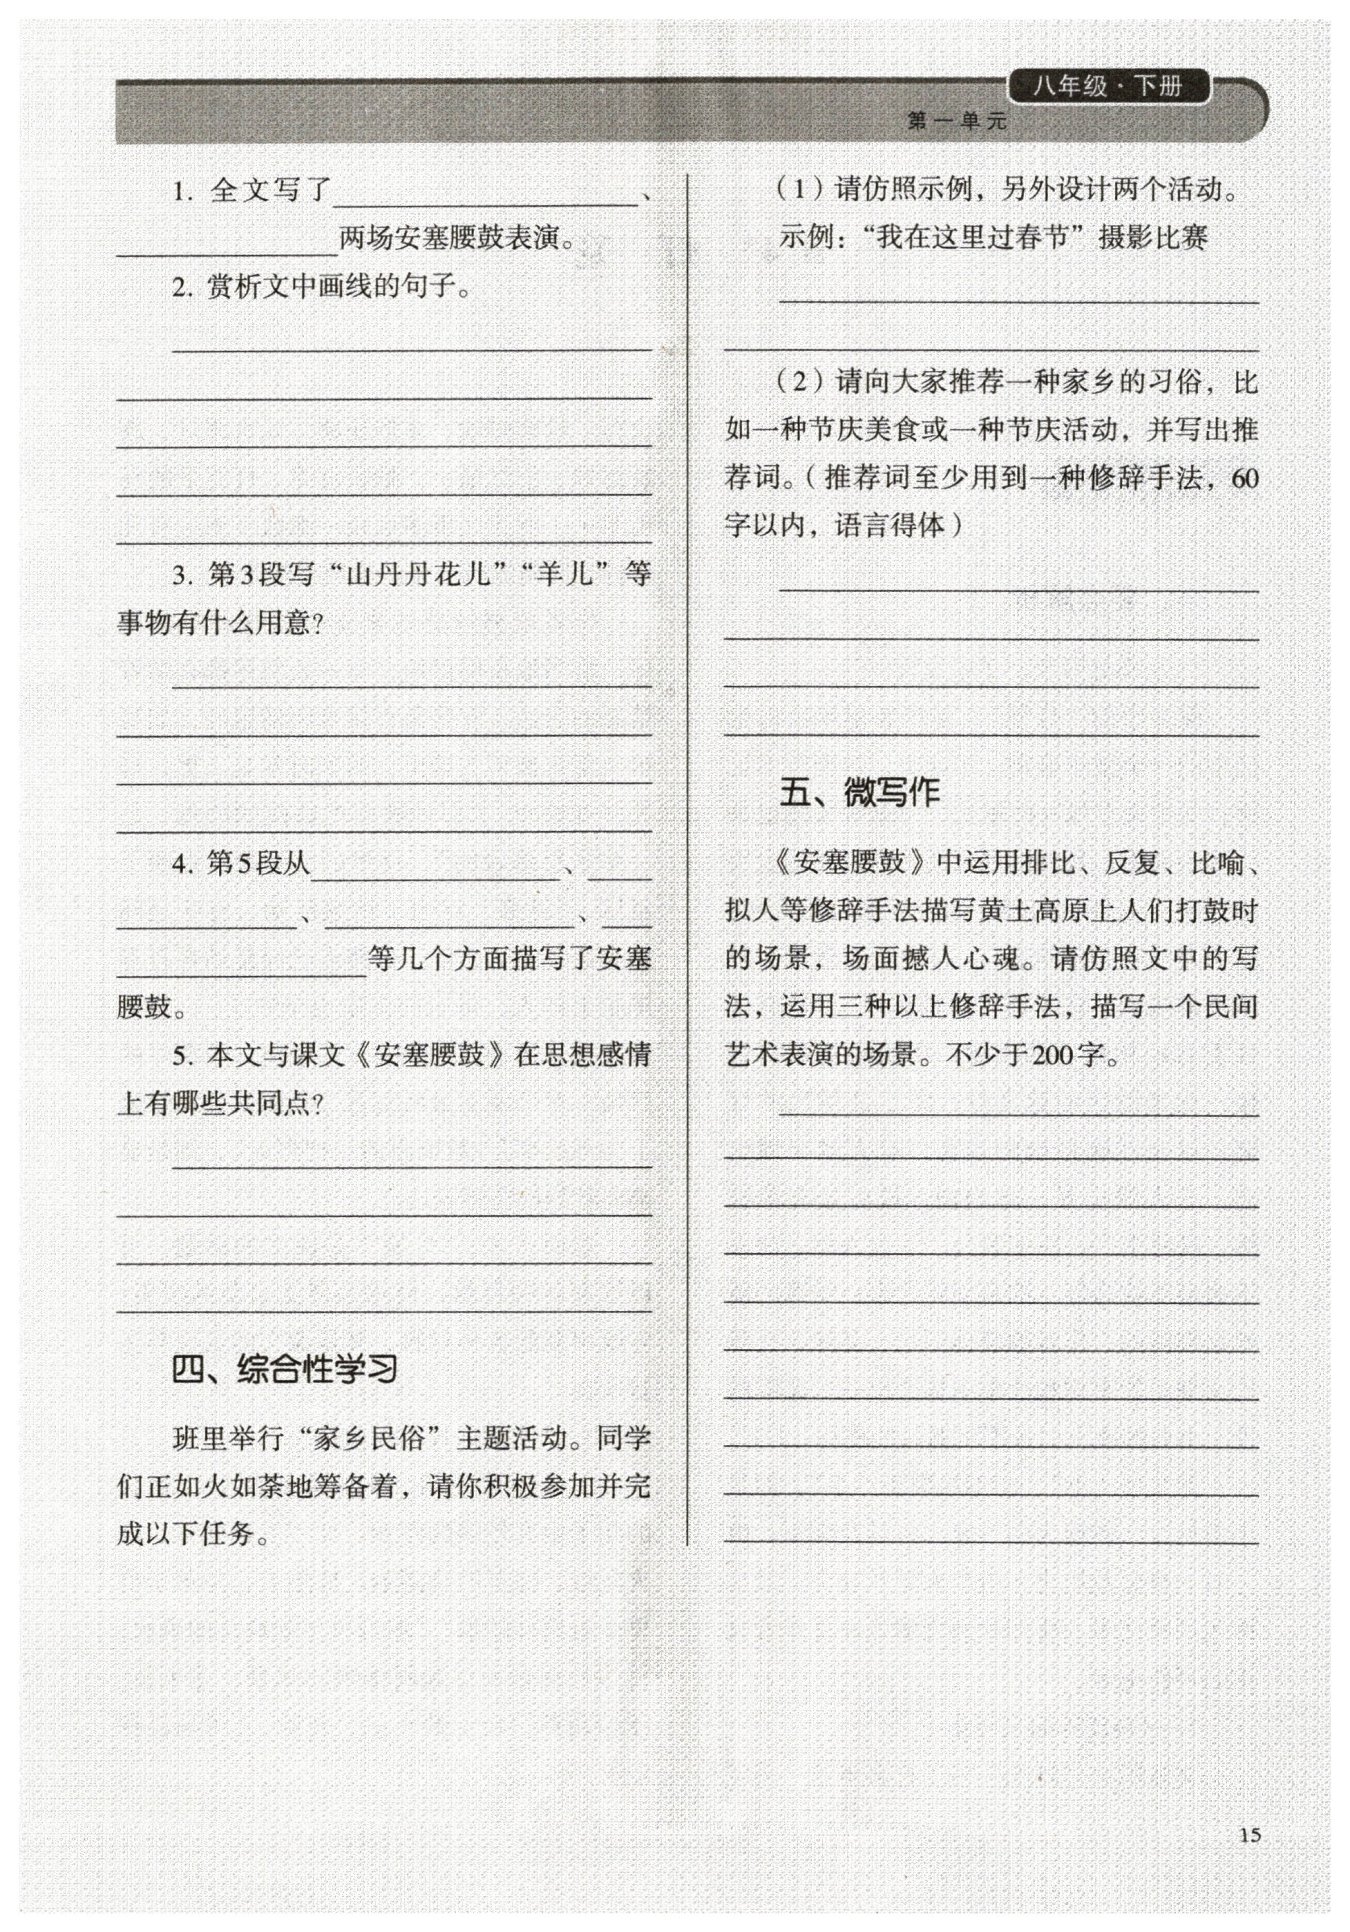 八年级·下册
第一单元
1. 全文写了、
两场安塞腰鼓表演。
2. 赏析文中画线的句子。
3. 第3段写“山丹丹花儿”“羊儿”等
事物有什么用意？
4. 第5段从、
、、
等几个方面描写了安塞
腰鼓。
5. 本文与课文《安塞腰鼓》在思想感情
上有哪些共同点？
四、综合性学习
班里举行“家乡民俗”主题活动。同学
们正如火如荼地筹备着，请你积极参加并完
成以下任务。
（1）请仿照示例，另外设计两个活动。
示例：“我在这里过春节”摄影比赛
（2）请向大家推荐一种家乡的习俗，比
如一种节庆美食或一种节庆活动，并写出推
荐词。（推荐词至少用到一种修辞手法，60
字以内，语言得体）
五、微写作
《安塞腰鼓》中运用排比、反复、比喻、
拟人等修辞手法描写黄土高原上人们打鼓时
的场景，场面撼人心魂。请仿照文中的写
法，运用三种以上修辞手法，描写一个民间
艺术表演的场景。不少于200字。
15